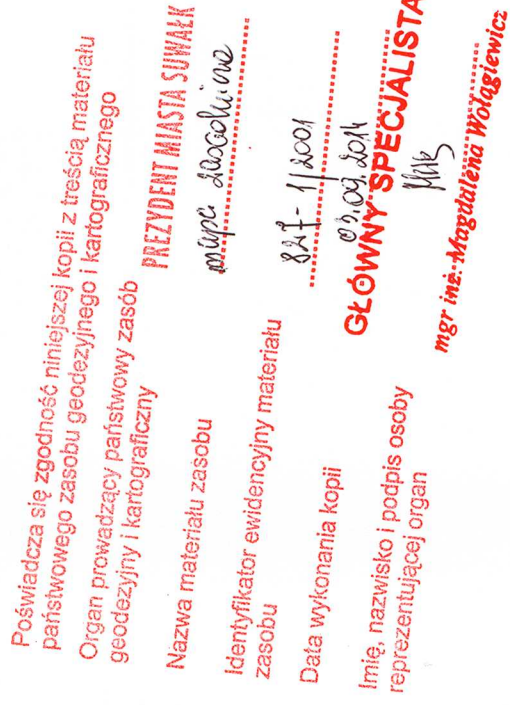 Poświadcza się zgodność niniejszej kopii z treścią materiału
państwowego zasobu geodezyjnego i kartograficznego
Organ prowadzący państwowy zasób
geodezyjny i kartograficzny
PREZYDENT MIASTA SUWAŁK
Nazwa materiału zasobu
mapa zasadnicza
Identyfikator ewidencyjny materiału
zasobu
827-1/2001
Data wykonania kopii
03.09.2014
GŁÓWNY SPECJALISTA
Imię, nazwisko i podpis osoby
reprezentującej organ
mgr inż. Magdalena Wołągiewicz